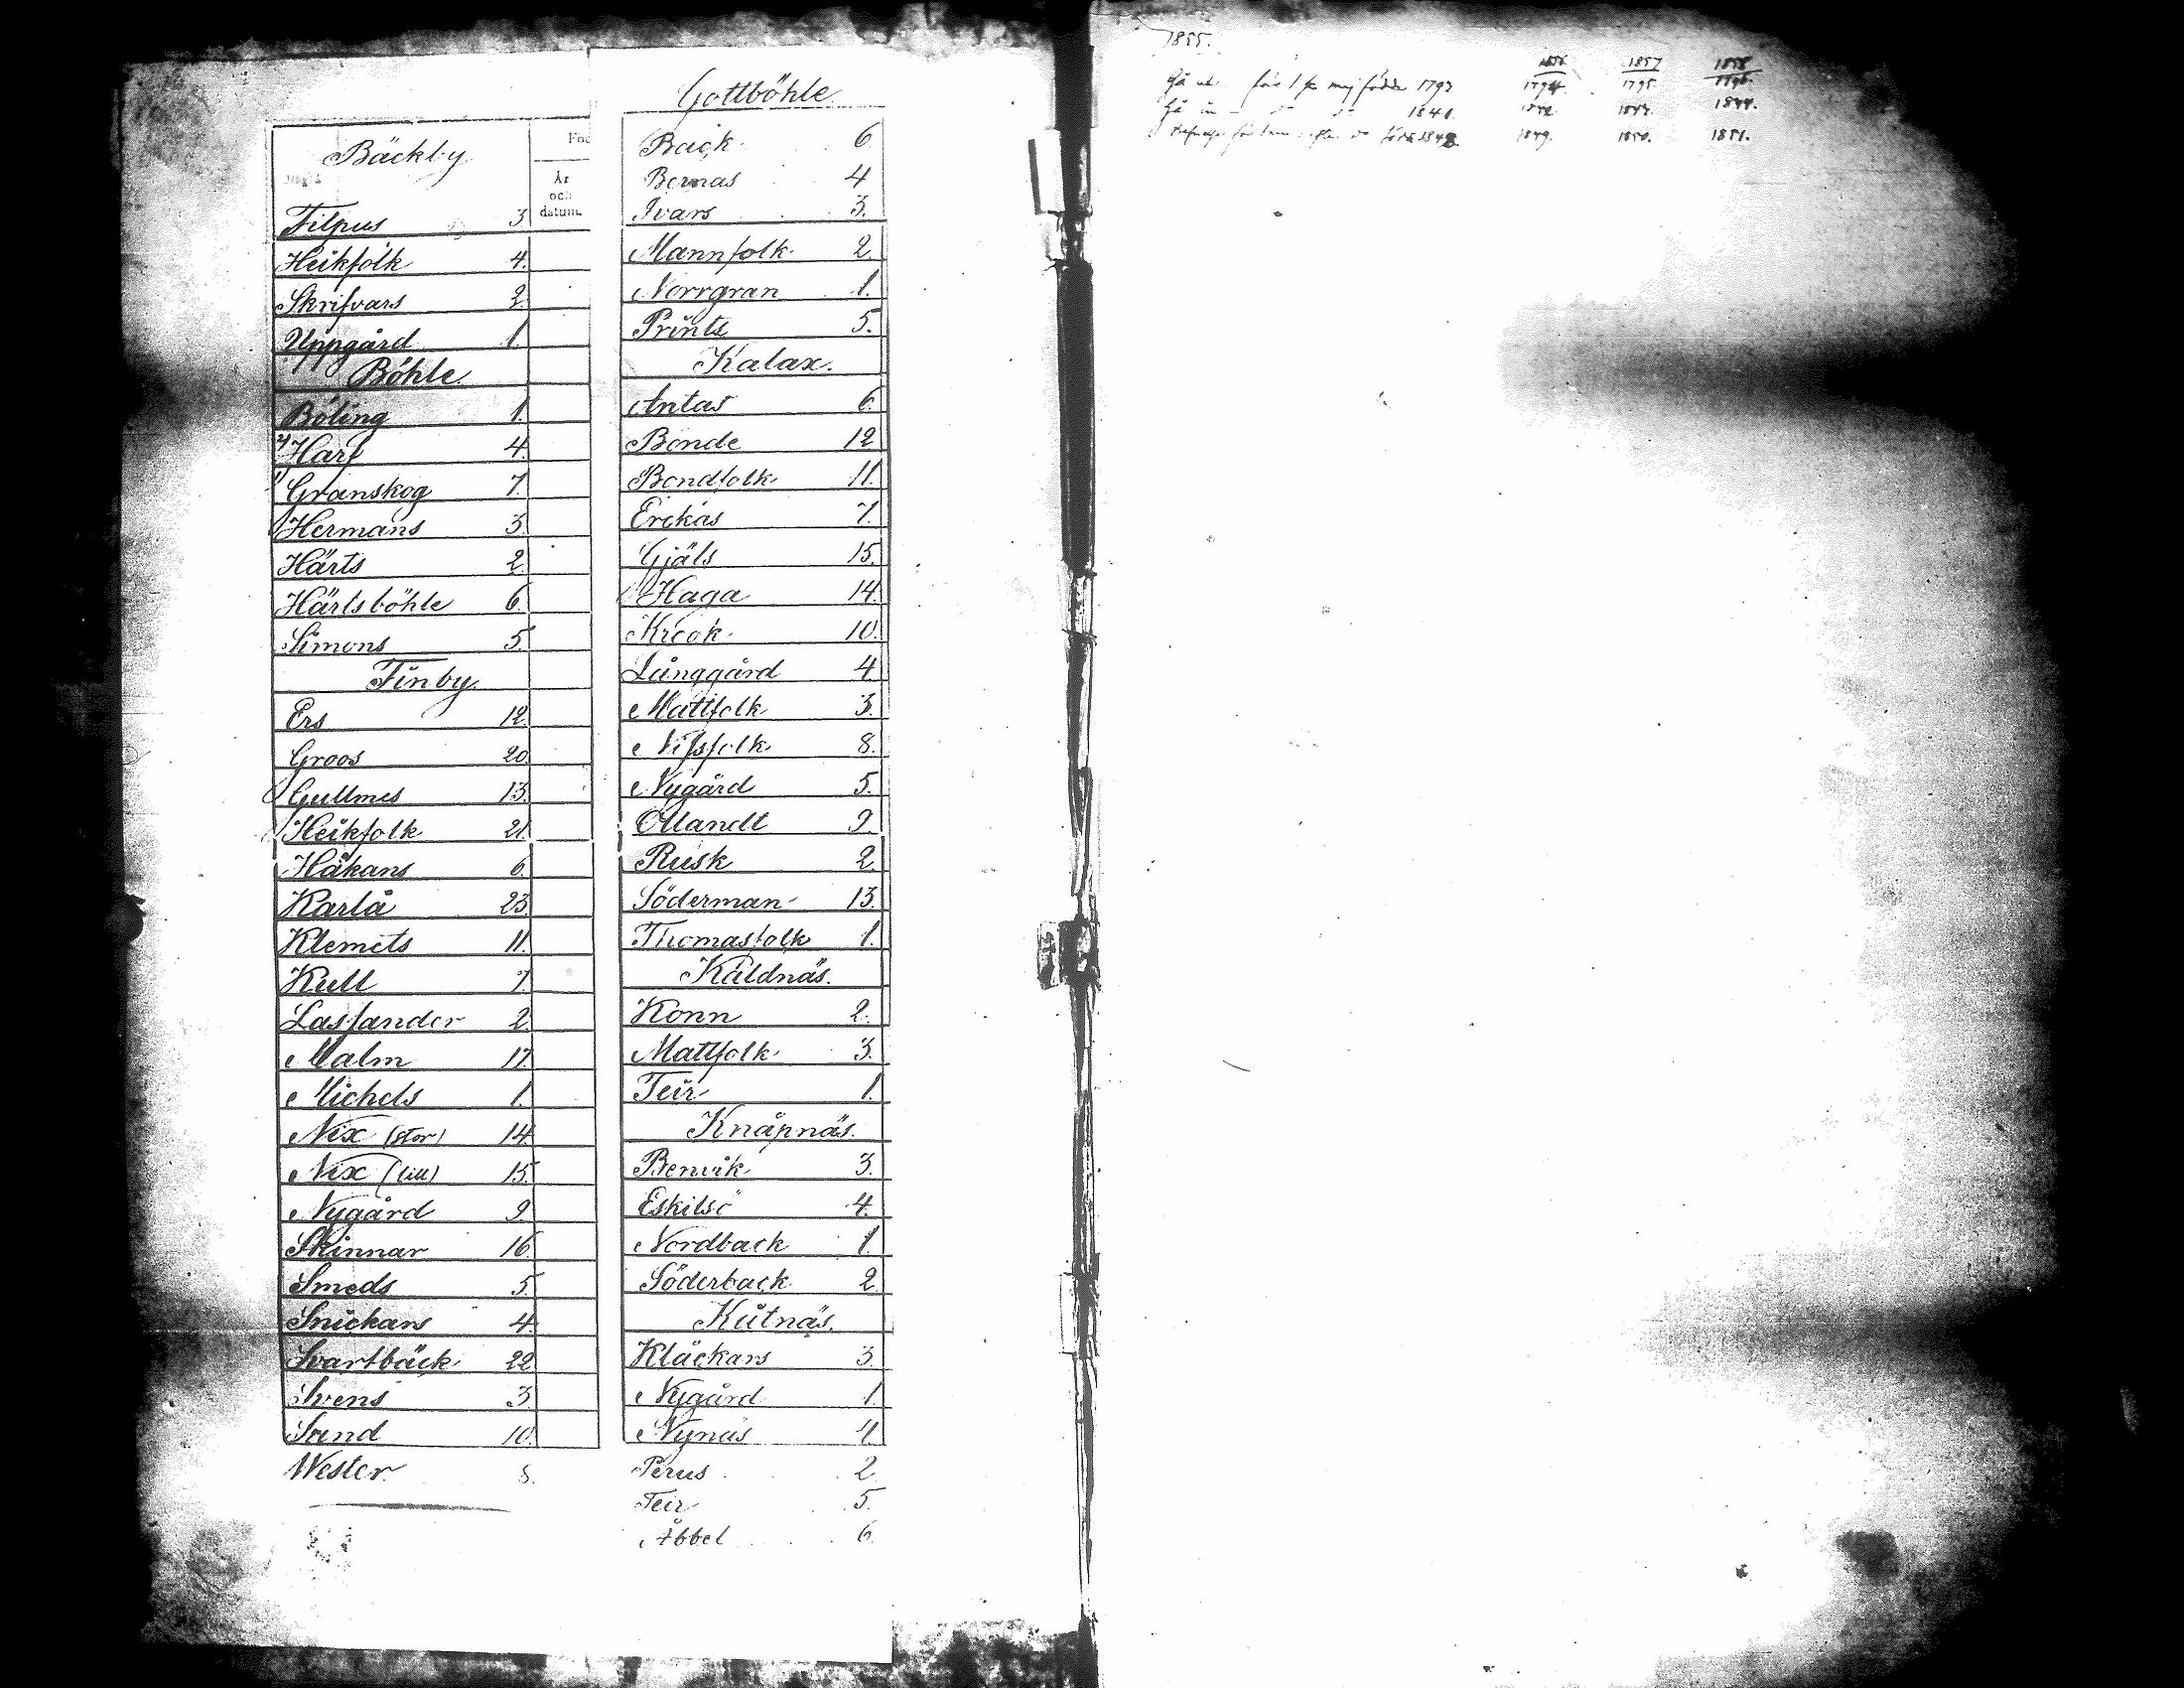 Bäckby
Föd
År
och
datum.
Filpus 3.
Heikfolk 4.
Skrifvars 2.
Uppgård 1.
Böhle.
Böling 1.
2) Harf 4.
1) Granskog 7.
Hermans 3.
Härts 2.
Härtsböhle 6.
Simons 5.
Finby.
Ers 12.
Groos 20.
Gullmes 13.
Heikfolk 21.
Håkans 6.
Karlå 23.
Klemets 11.
Kull 7.
Lassander 2.
Malm 17.
Michels 1.
Nix (stor) 14.
Nix (lill) 15.
Nygård 9.
Skinnar 16.
Smeds 5.
Snickars 4.
Svartbäck 22.
Svens 3.
Sund 10.
Wester 8.
Gottböhle.
Back 6.
Bernas 4
Ivars 3.
Mannfolk 2.
Norrgran 1.
Prints 5.
Kalax.
Antas 6.
Bonde 12.
Bondfolk 11.
Erckas 7.
Gjäls 15.
Haga 14.
Krook 10.
Långgård 4.
Mattfolk 3.
Nissfolk 8.
Nygård 5.
Ollandt 9.
Rusk 2.
Söderman 13.
Thomasfolk 1.
Kåldnäs.
Konn 2.
Mattfolk 3.
Teir 1.
Knåpnäs.
Benvik 3.
Eskilsö 4.
Nordback 1.
Söderback 2.
Kutnäs.
Klåckars 3.
Nygård 1.
Nynäs 4.
Perus 2.
Teir 5.
Åbbel 6.
1855. 1856 1857 1858
Gå ut födde 1793 1794. 1795. 1796.
Gå in 1841. 1842. 1843. 1844.
1849. 1850. 1851.